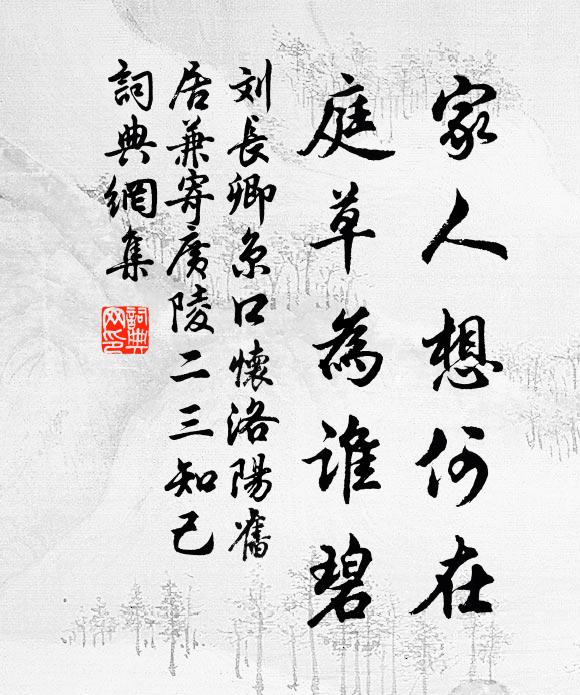 家人想何在
庭草為誰碧
刘長卿京口懷洛陽舊
居兼寄廣陵二三知己
詞典網集
詞典网印